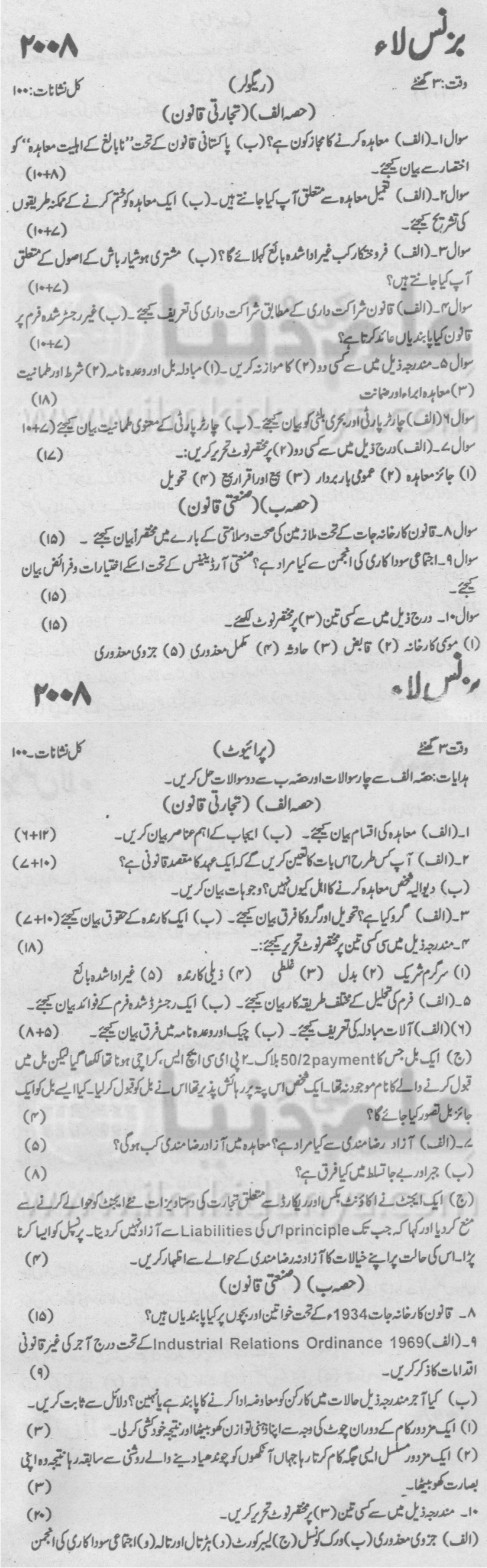 بزنس لاء ۲۰۰۸
وقت: ۳ گھنٹے (ریگولر) کل نشانات: ۱۰۰
(حصہ الف) (تجارتی قانون)
سوال۱۔(الف) معاہدہ کرنے کا مجاز کون ہے؟ (ب) پاکستانی قانون کے تحت "نابالغ کے اہلیت معاہدہ" کو
اختصار سے بیان کیجئے۔ (۱۰+۸)
سوال۲۔(الف) تکمیل معاہدہ سے متعلق آپ کیا جانتے ہیں۔ (ب) ایک معاہدہ کو ختم کرنے کے ممکنہ طریقوں
کی تشریح کیجئے۔ (۱۰+۷)
سوال۳۔(الف) فروختکار کب غیر ادا شدہ بائع کہلائے گا؟ (ب) مشتری ہوشیار باش کے اصول کے متعلق
آپ کیا جانتے ہیں؟ (۱۰+۷)
سوال۴۔(الف) قانون شراکت داری کے مطابق شراکت داری کی تعریف کیجئے۔ (ب) غیر رجسٹر شدہ فرم پر
قانون کیا پابندیاں عائد کرتا ہے؟ (۱۰+۷)
سوال۵۔مندرجہ ذیل میں سے کسی دو (۲) کا موازنہ کریں۔ (۱) مبادلہ بل اور وعدہ نامہ (۲) شرط اور طمانیت
(۳) معاہدہ ابراء اور ضمانت (۱۸)
سوال۶ (الف) چارٹر پارٹی اور بحری بلٹی کو بیان کیجئے۔ (ب) چارٹر پارٹی کے معنوی طمانیت بیان کیجئے (۷+۱۰)
سوال۷۔(الف) درج ذیل میں سے کسی دو (۲) پر مختصر نوٹ تحریر کریں:۔ (۱۷)
(۱) جائز معاہدہ (۲) عمومی باربردار (۳) بیع اور اقرار بیع (۴) تحویل
(حصہ ب) (صنعتی قانون)
سوال۸۔قانون کارخانہ جات کے تحت ملازمین کی صحت و سلامتی کے بارے میں مختصراً بیان کیجئے۔ (۱۵)
سوال۹۔اجتماعی سوداکاری کی انجمن سے کیا مراد ہے؟ صنعتی آرڈیننس کے تحت اسکے اختیارات و فرائض بیان
کیجئے۔ (۱۵)
سوال۱۰۔ درج ذیل میں سے کسی تین (۳) پر مختصر نوٹ لکھئے۔ (۱۵)
(۱) موسمی کارخانہ (۲) قابض (۳) حادثہ (۴) مکمل معذوری (۵) جزوی معذوری
بزنس لاء ۲۰۰۸
وقت ۳ گھنٹے (پرائیوٹ) کل نشانات۔۱۰۰
ہدایات: حصہ الف سے چار سوالات اور حصہ ب سے دو سوالات حل کریں۔
(حصہ الف) (تجارتی قانون)
۱۔(الف) معاہدہ کی اقسام بیان کیجئے۔ (ب) ایجاب کے اہم عناصر بیان کریں۔ (۶+۱۲)
۲۔(الف) آپ کس طرح اس بات کا تعین کریں گے کہ ایک عہد کا مقصد قانونی ہے؟ (۷+۱۰)
(ب) دیوالیہ شخص معاہدہ کرنے کا اہل کیوں نہیں؟ وجوہات بیان کریں۔
۳۔(الف) گرو کیا ہے؟ تحویل اور گرو کا فرق بیان کیجئے۔ (ب) ایک کارندہ کے حقوق بیان کیجئے (۷+۱۰)
۴۔مندرجہ ذیل میں سی کسی تین پر مختصر نوٹ تحریر کیجئے:۔ (۱۸)
(۱) سرگرم شریک (۲) بدل (۳) غلطی (۴) ذیلی کارندہ (۵) غیر ادا شدہ بائع
۵۔(الف) فرم کی تحلیل کے مختلف طریقہ کار بیان کیجئے۔ (ب) ایک رجسٹرڈ شدہ فرم کے فوائد بیان کیجئے۔
(۶) (الف) آلات مبادلہ کی تعریف کیجئے۔ (ب) چیک اور وعدہ نامہ میں فرق بیان کیجئے۔ (۸+۵)
(ج) ایک بل جس کا 50/2payment بلاک۔۲ پی ای سی ایچ ایس، کراچی ہونا تھا لکھا گیا لیکن بل میں
قبول کرنے والے کا نام موجود نہ تھا۔ ایک شخص اس پتہ پر رہائش پذیر تھا اس نے بل کو قبول کرلیا۔ کیا ایسے بل کو ایک
جائز بل تصور کیا جائے گا؟ (۴)
۷۔(الف) آزاد رضامندی سے کیا مراد ہے؟ معاہدہ میں آزاد رضامندی کب ہوگی؟ (۵)
(ب) جبر اور بے جا تسلط میں کیا فرق ہے؟ (۸)
(ج) ایک ایجنٹ نے اکاؤنٹ بکس اور ریکارڈ سے متعلق تجارت کی دستاویزات نئے ایجنٹ کو حوالے کرنے سے
منع کردیا اور کہا کہ جب تک principle اس کی Liabilities سے آزاد نہیں کردیتا۔ پرنسپل کو ایسا کرنا
پڑا۔ اس کی حالت پر اپنے خیالات کا آزادنہ رضامندی کے حوالے سے اظہار کریں۔ (۴)
(حصہ ب) (صنعتی قانون)
۸۔ قانون کارخانہ جات 1934ء کے تحت خواتین اور بچوں پر کیا پابندیاں ہیں؟ (۱۵)
۹۔(الف) Industrial Relations Ordinance 1969 کے تحت درج آجر کی غیر قانونی
اقدامات کا ذکر کریں۔ (۹)
(ب) کیا آجر مندرجہ ذیل حالات میں کارکن کو معاوضہ ادا کرنے کا پابند ہے یا نہیں؟ دلائل سے ثابت کریں۔
(۱) ایک مزدور کام کے دوران چوٹ کی وجہ سے اپنا ذہنی توازن کھو بیٹھا اور نتیجہ خود کشی کرلی۔ (۳)
(۲) ایک مزدور مسلسل ایسی جگہ کام کرتا رہا جہاں آنکھوں کو چوندھیا دینے والے روشنی سے سابقہ رہا نتیجہ وہ اپنی
بصارت کھو بیٹھا۔ (۳)
۱۰۔ مندرجہ ذیل میں سے کسی تین (۳) پر مختصر نوٹ تحریر کریں۔ (۲۰)
(الف) جزوی معذوری (ب) ورک کونسل (ج) لیبر کورٹ (د) ہڑتال اور تالہ (و) اجتماعی سوداکاری کی انجمن